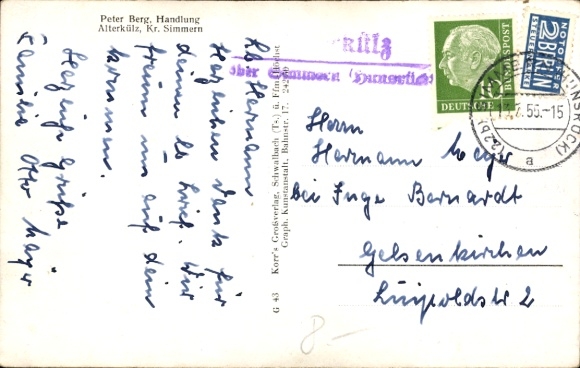 Peter Berg, Handlung
Alterkülz, Kr. Simmern
Lb Hermann
Herzlichen Dank für
deinen lb Brief. Wir
freuen uns auf dein
kommen.
Herzliche Grüße
Familie Otto
G 43 Korr's Großverlag, Schwalbach (Ts.) ü. Ffm/Höchst
Graph. Kunstanstalt, Bahnstr. 17.
KÜLZ
über Simmern (Hunsrück)
DEUTSCHE
BUNDESPOST
10
NOTOPFER
2 BERLIN
STEUERMARKE
55.-15
(22b)
a
Herrn
Hermann Meyer
bei Inge Barnardt
Gelsenkirchen
Luipoldstr 2
8-